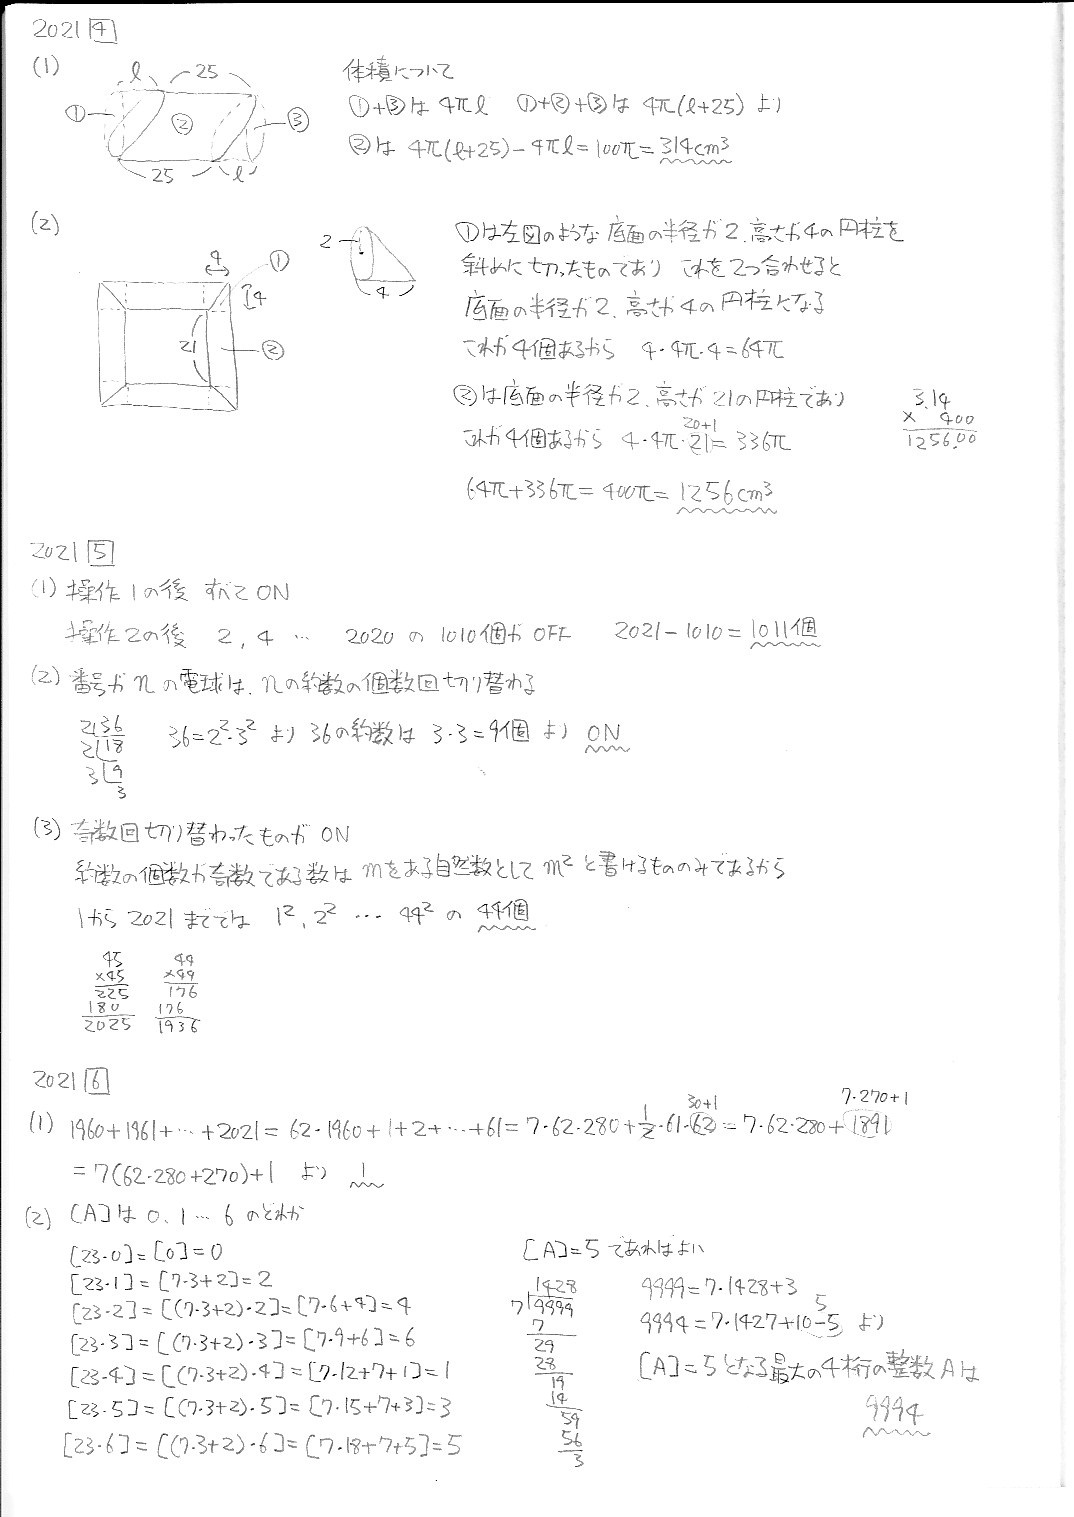 2021 4
(1)
l 25
① ② ③
25 l
体積について
①+③は 4πl ①+②+③は 4π(l+25) より
②は 4π(l+25)-4πl=100π=314cm³
(2)
4 ①
4
21 ②
2
4
①は左図のような 底面の半径が2、高さが4の円柱を
斜めに切ったものであり これを2つ合わせると
底面の半径が2、高さが4の円柱となる
これが4個あるから 4・4π・4=64π
②は底面の半径が2、高さが21の円柱であり
20+1
これが4個あるから 4・4π・21=336π
64π+336π=400π=1256cm³
3.14
× 400
1256.00
2021 5
(1) 操作1の後 すべてON
操作2の後 2, 4 … 2020 の 1010個が OFF 2021-1010=1011個
(2) 番号が n の電球は、nの約数の個数回切り替わる
2)36
2)18
3)9
3
36=2²・3² より 36の約数は 3・3=9個 より ON
(3) 奇数回切り替わったものが ON
約数の個数が奇数である数は mをある自然数として m² と書けるもののみであるから
1から 2021 まででは 1², 2² … 44² の 44個
45
×45
225
180
2025
44
×44
176
176
1936
2021 6
30+1 7・270+1
(1) 1960+1961+…+2021=62・1960+1+2+…+61=7・62・280+1/2・61・62=7・62・280+1891
=7(62・280+270)+1 より 1
(2) [A]は 0、1… 6 のどれか
[23・0]=[0]=0
[23・1]=[7・3+2]=2
[23・2]=[(7・3+2)・2]=[7・6+4]=4
[23・3]=[(7・3+2)・3]=[7・9+6]=6
[23・4]=[(7・3+2)・4]=[7・12+7+1]=1
[23・5]=[(7・3+2)・5]=[7・15+7+3]=3
[23・6]=[(7・3+2)・6]=[7・18+7+5]=5
[A]=5 であればよい
1428
7)9999
7
29
28
19
14
59
56
3
9999=7・1428+3
5
9994=7・1427+10-5 より
[A]=5となる最大の4桁の整数Aは
9994